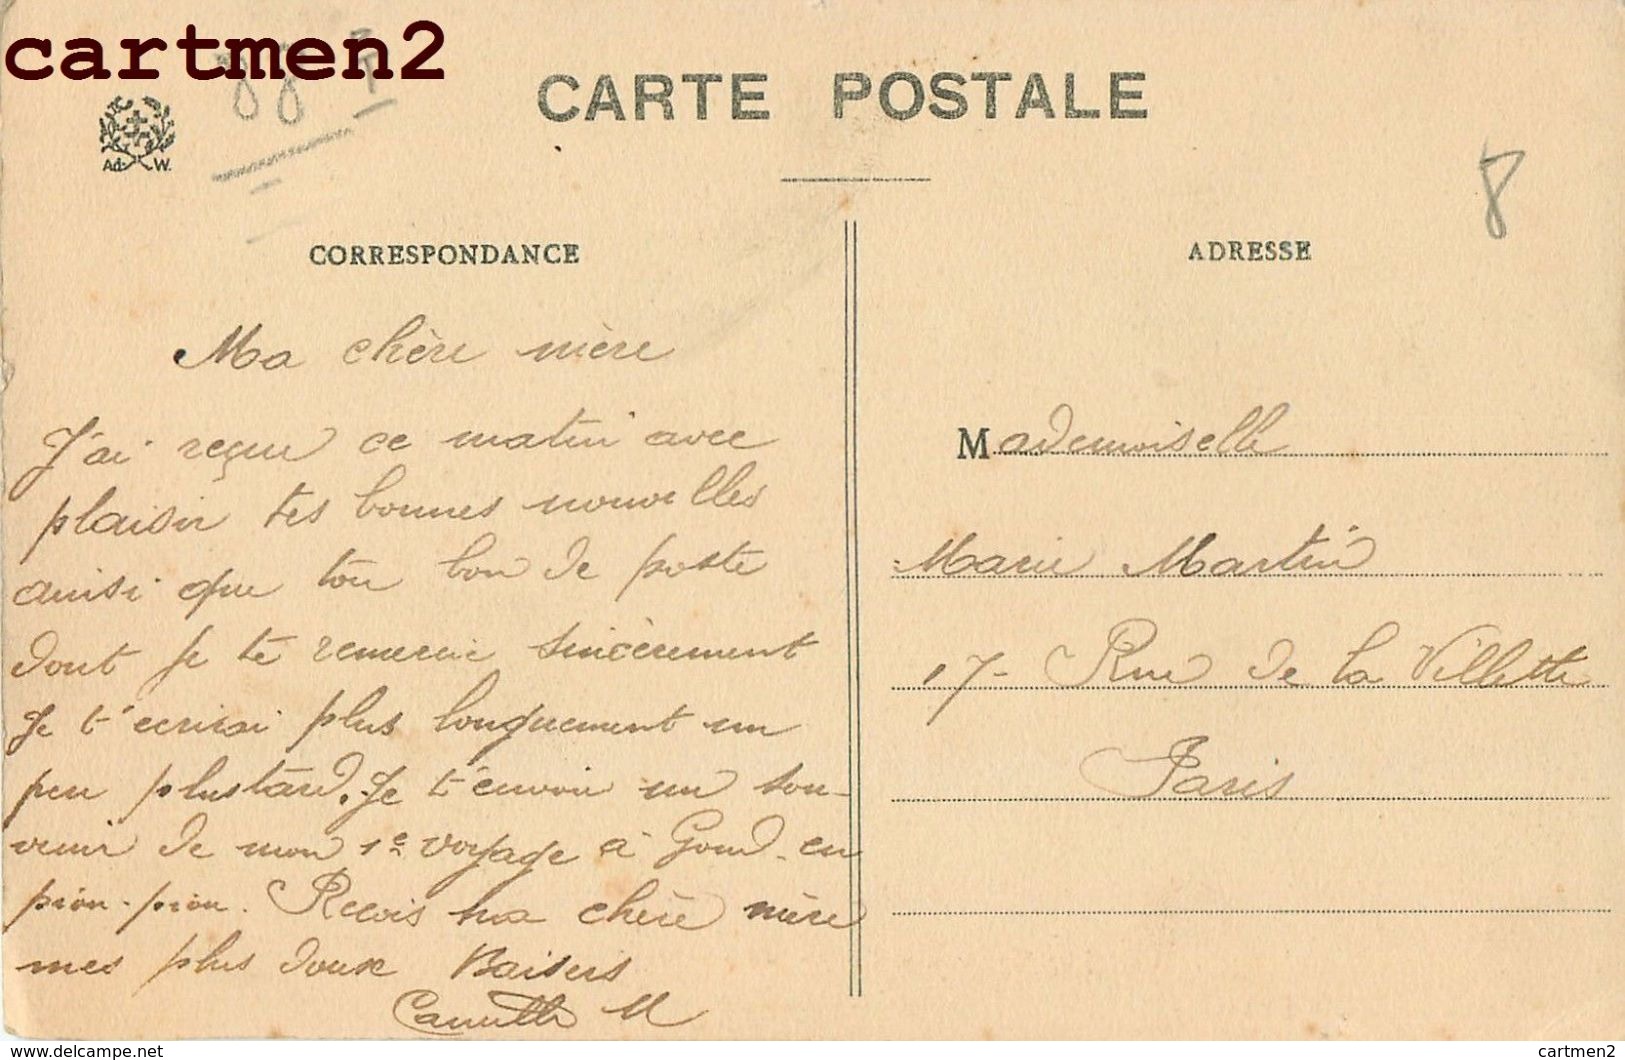 cartmen2
88 T
CARTE POSTALE
Ad. W.
8
CORRESPONDANCE
Ma chère mère
J'ai reçue ce matin avec
plaisir tes bonnes nouvelles
ainsi que ton bon de poste
dont je te remercie sincèrement
Je t'écrirai plus longuement un
peu plustard. Je t'envoie un sou-
venir de mon 1e voyage à en
piou-piou. Recois ma chère mère
mes plus doux Baisers
Camille M
ADRESSE
Mademoiselle
Marie Martin
17- Rue de la Villette
Paris
www.delcampe.net
cartmen2